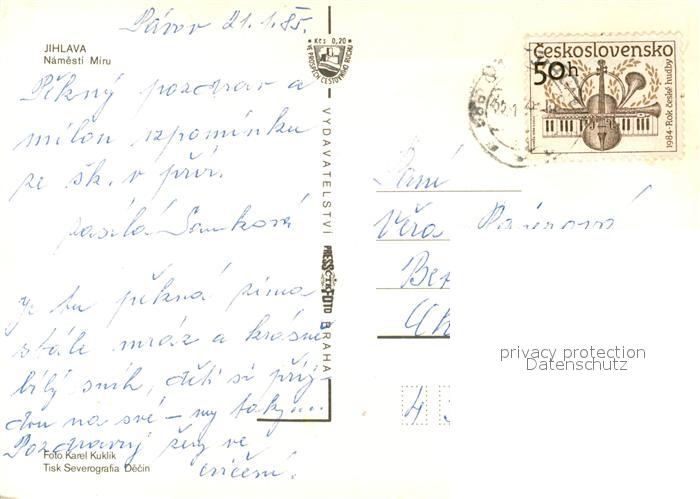 21.1.85.
JIHLAVA
Náměstí Míru
Kčs 0,20
VE PROSPĚCH CESTOVNÍHO RUCHU
Československo
50h
1984 · Rok české hudby
Pěkný pozdrav a
milou vzpomínku
ze šk. v přír.
zasílá
Je tu pěkná zima
stále mráz a krásně
bílý sníh, děti si přij-
dou na své – my taky...
Pozdravuj ženy ve
cvičení.
VYDAVATELSTVÍ PRESSFOTO PRAHA
Paní
Věra
4
Foto Karel Kuklík
Tisk Severografia Děčín
privacy protection
Datenschutz